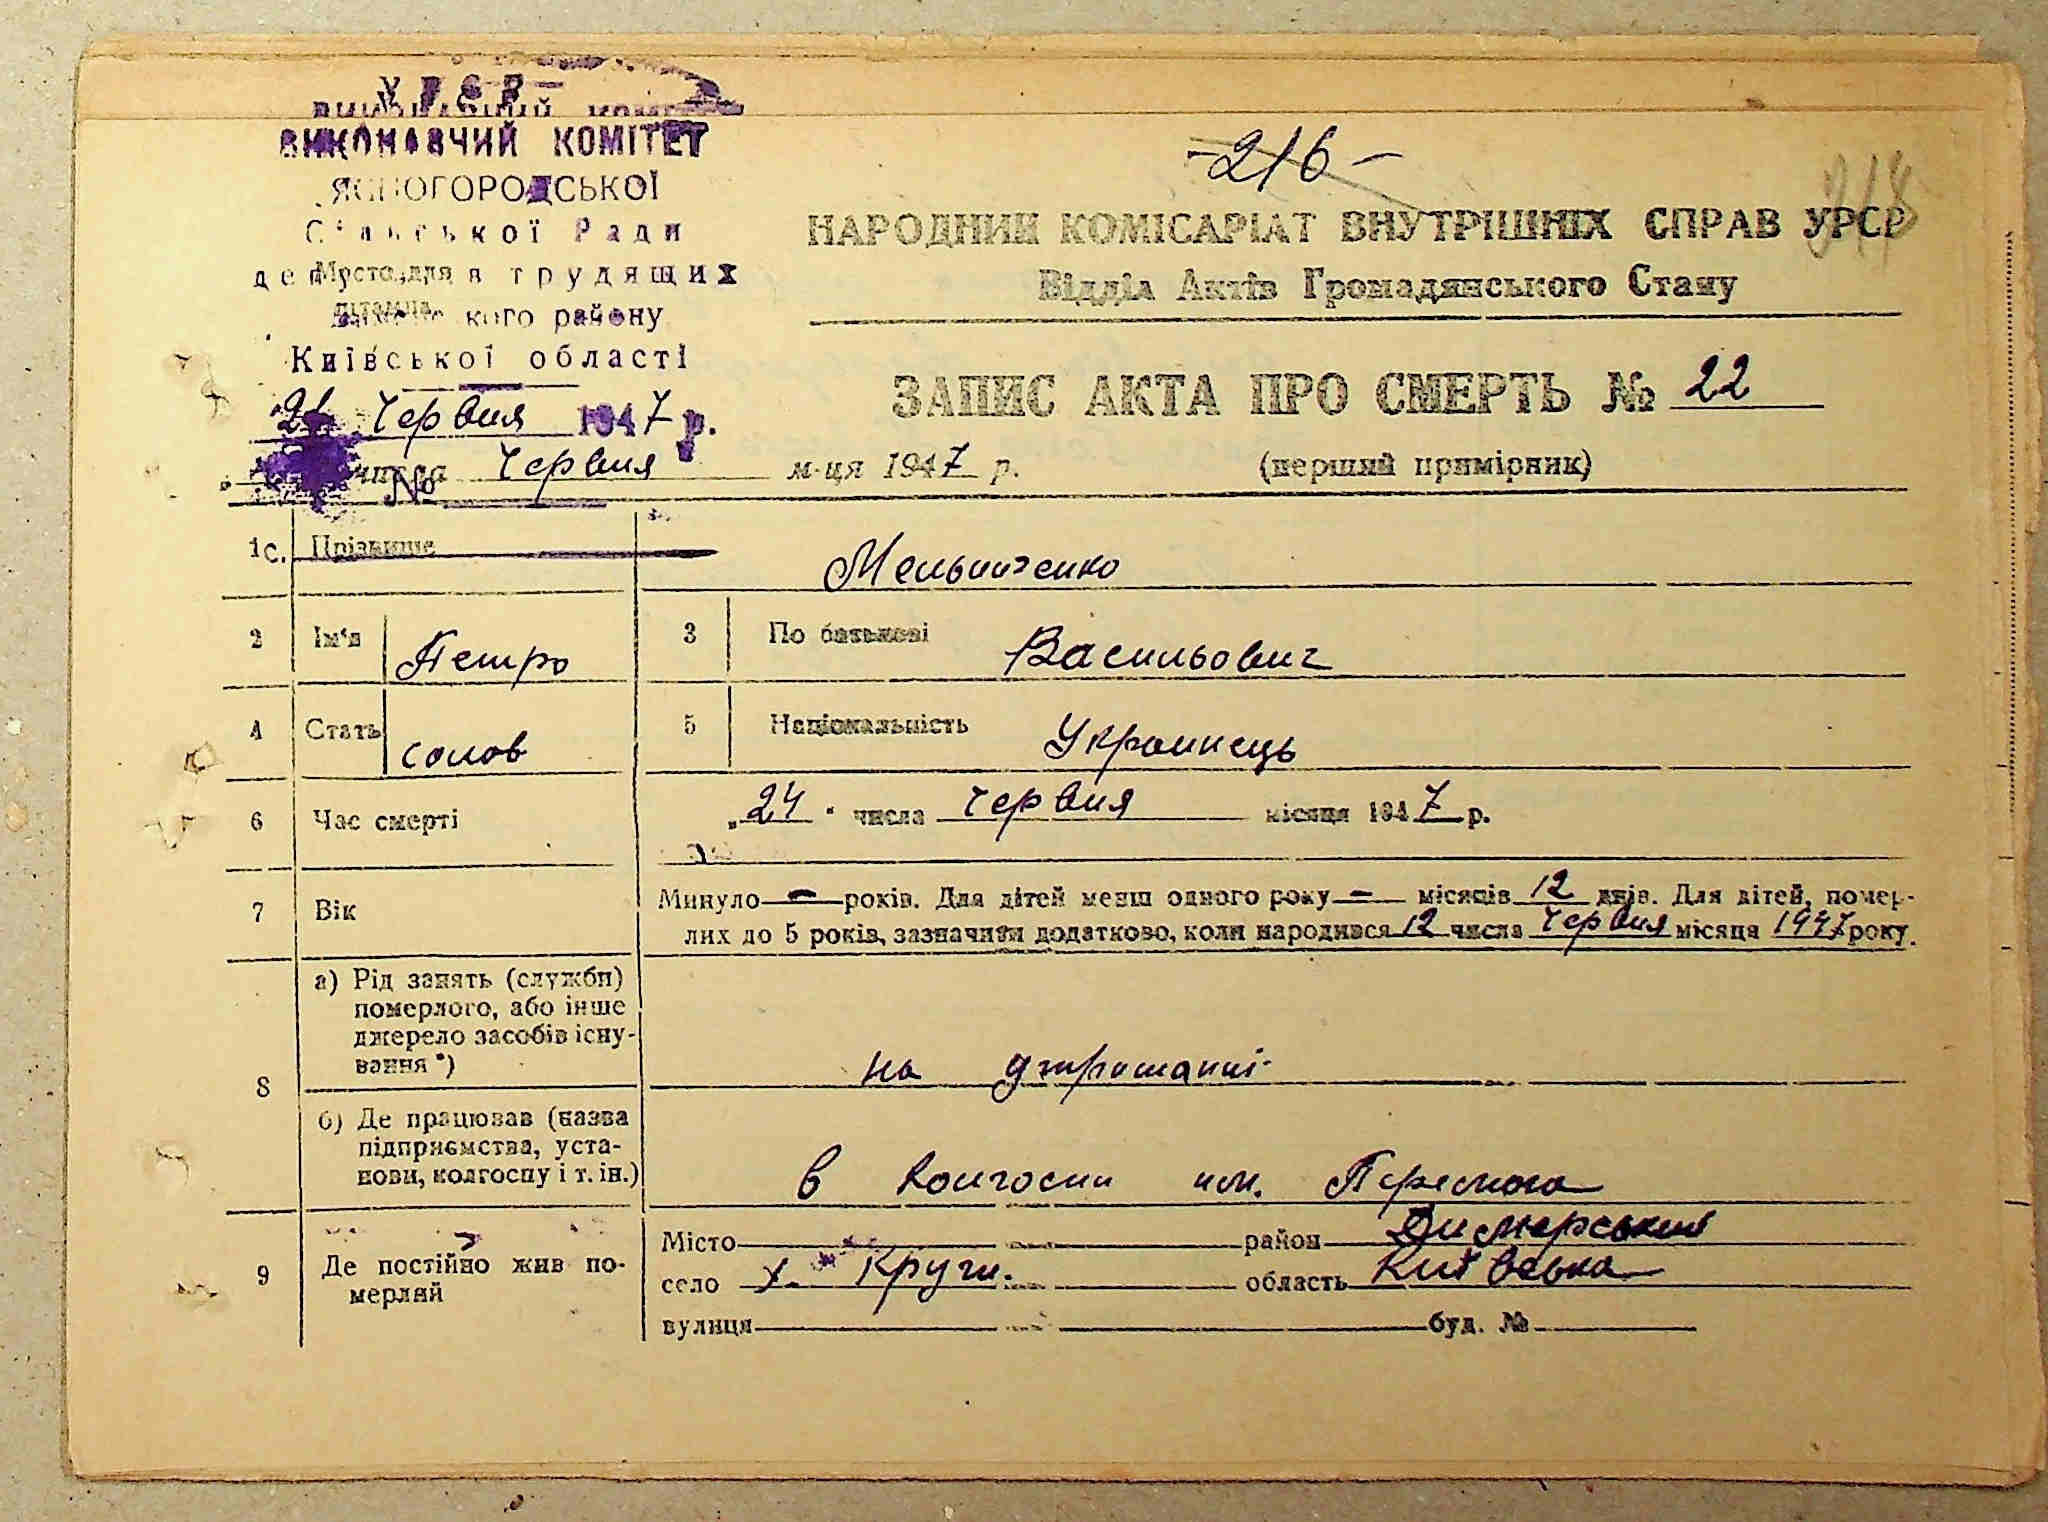 У Р С Р
ВИКОНАВЧИЙ КОМІТЕТ
ЯСНОГОРОДСЬКОЇ
Сільської Ради
депутатів трудящих
кого району
Київської області
Місце для
штампа
-216-
318
НАРОДНИЙ КОМІСАРІАТ ВНУТРІШНІХ СПРАВ УРСР
Відділ Актів Громадянського Стану
ЗАПИС АКТА ПРО СМЕРТЬ № 22
Червня 1947 р.
числа Червня м-ця 1947 р.
(перший примірник)
№
1 Прізвище Мельниченко
2 Ім'я Петро 3 По батькові Васильович
4 Стать 5 Національність Украинець
6 Час смерті „24" числа Червня місяця 1947 р.
7 Вік Минуло — років. Для дітей менш одного року — місяців 12 днів. Для дітей, помер-
лих до 5 років, зазначити додатково, коли народився 12 числа Червня місяця 1947 року.
8 а) Рід занять (служби)
померлого, або інше
джерело засобів існу-
вання *)
на утриманні
б) Де працював (назва
підприємства, уста-
нови, колгоспу і т. ін.)
в колгоспи им. Перемога
9 Де постійно жив по-
мерлий
Місто район Димерський
село х. Круги. область Київська
вулиця буд. №